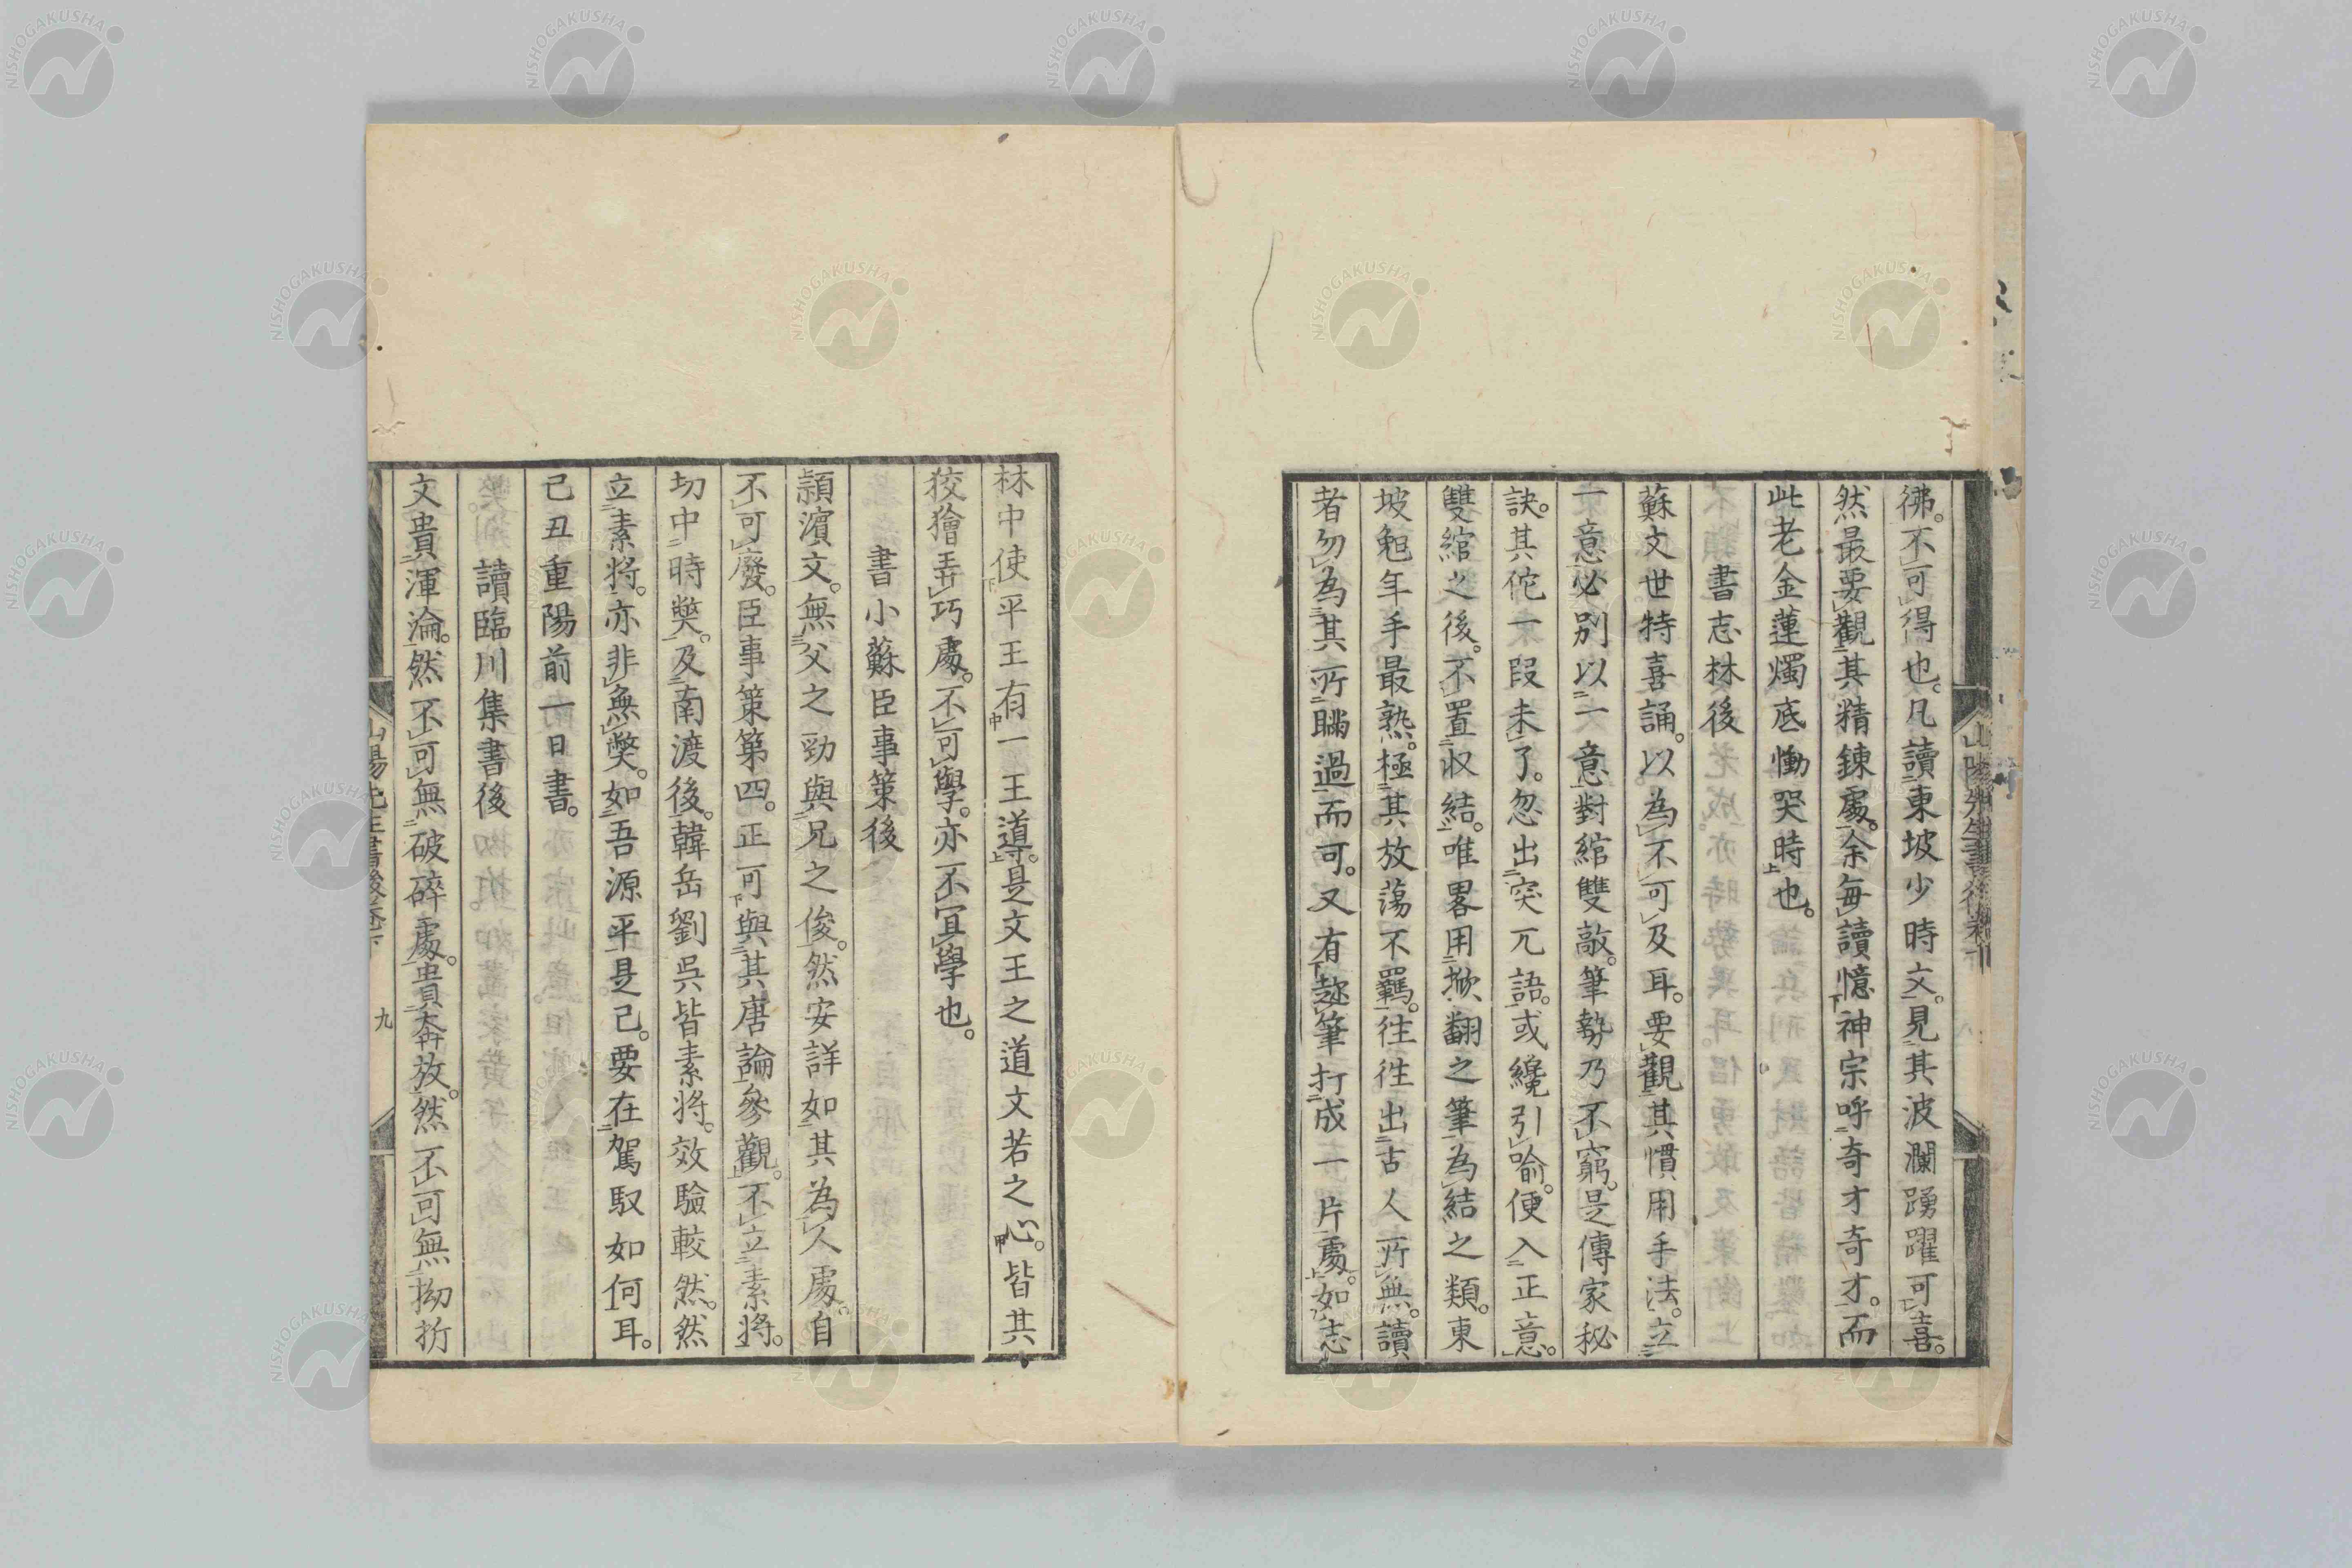 彿。不可得也。凡讀東坡少時文。見其波瀾踴躍可喜。
然最要觀其精錬處。余每讀憶神宗呼奇才奇才。而
此老金蓮燭底慟哭時也。
書志林後
蘇文世特喜誦。以為不可及耳。要觀其慣用手法。立
一意必別以一意對綰雙敲。筆勢乃不窮。是傳家秘
訣。其佗一段未了。忽出突兀語。或纔引喻。便入正意。
雙綰之後。不置收結。唯畧用掀翻之筆為結之類。東
坡晚年手最熟。極其放蕩不羈。往往出古人所無。讀
者勿為其所瞞過而可。又有趁筆打成一片處。如志
林中使平王有一王道。是文王之道文若之心。皆其
狡獪弄巧處。不可學。亦不宜學也。
書小蘇臣事策後
潁濱文。無父之勁與兄之俊。然安詳如其為人處。自
不可廢。臣事策第四。正可與其唐論參觀。不立素將。
切中時獘。及南渡後。韓岳劉呉皆素將。效驗較然。然
立素將。亦非無獘。如吾源平是已。要在駕馭如何耳。
己丑重陽前一日書。
讀臨川集書後
文貴渾淪。然不可無破碎處。貴奔放。然不可無拗折
山陽先生書後卷下
九
NISHOGAKUSHA